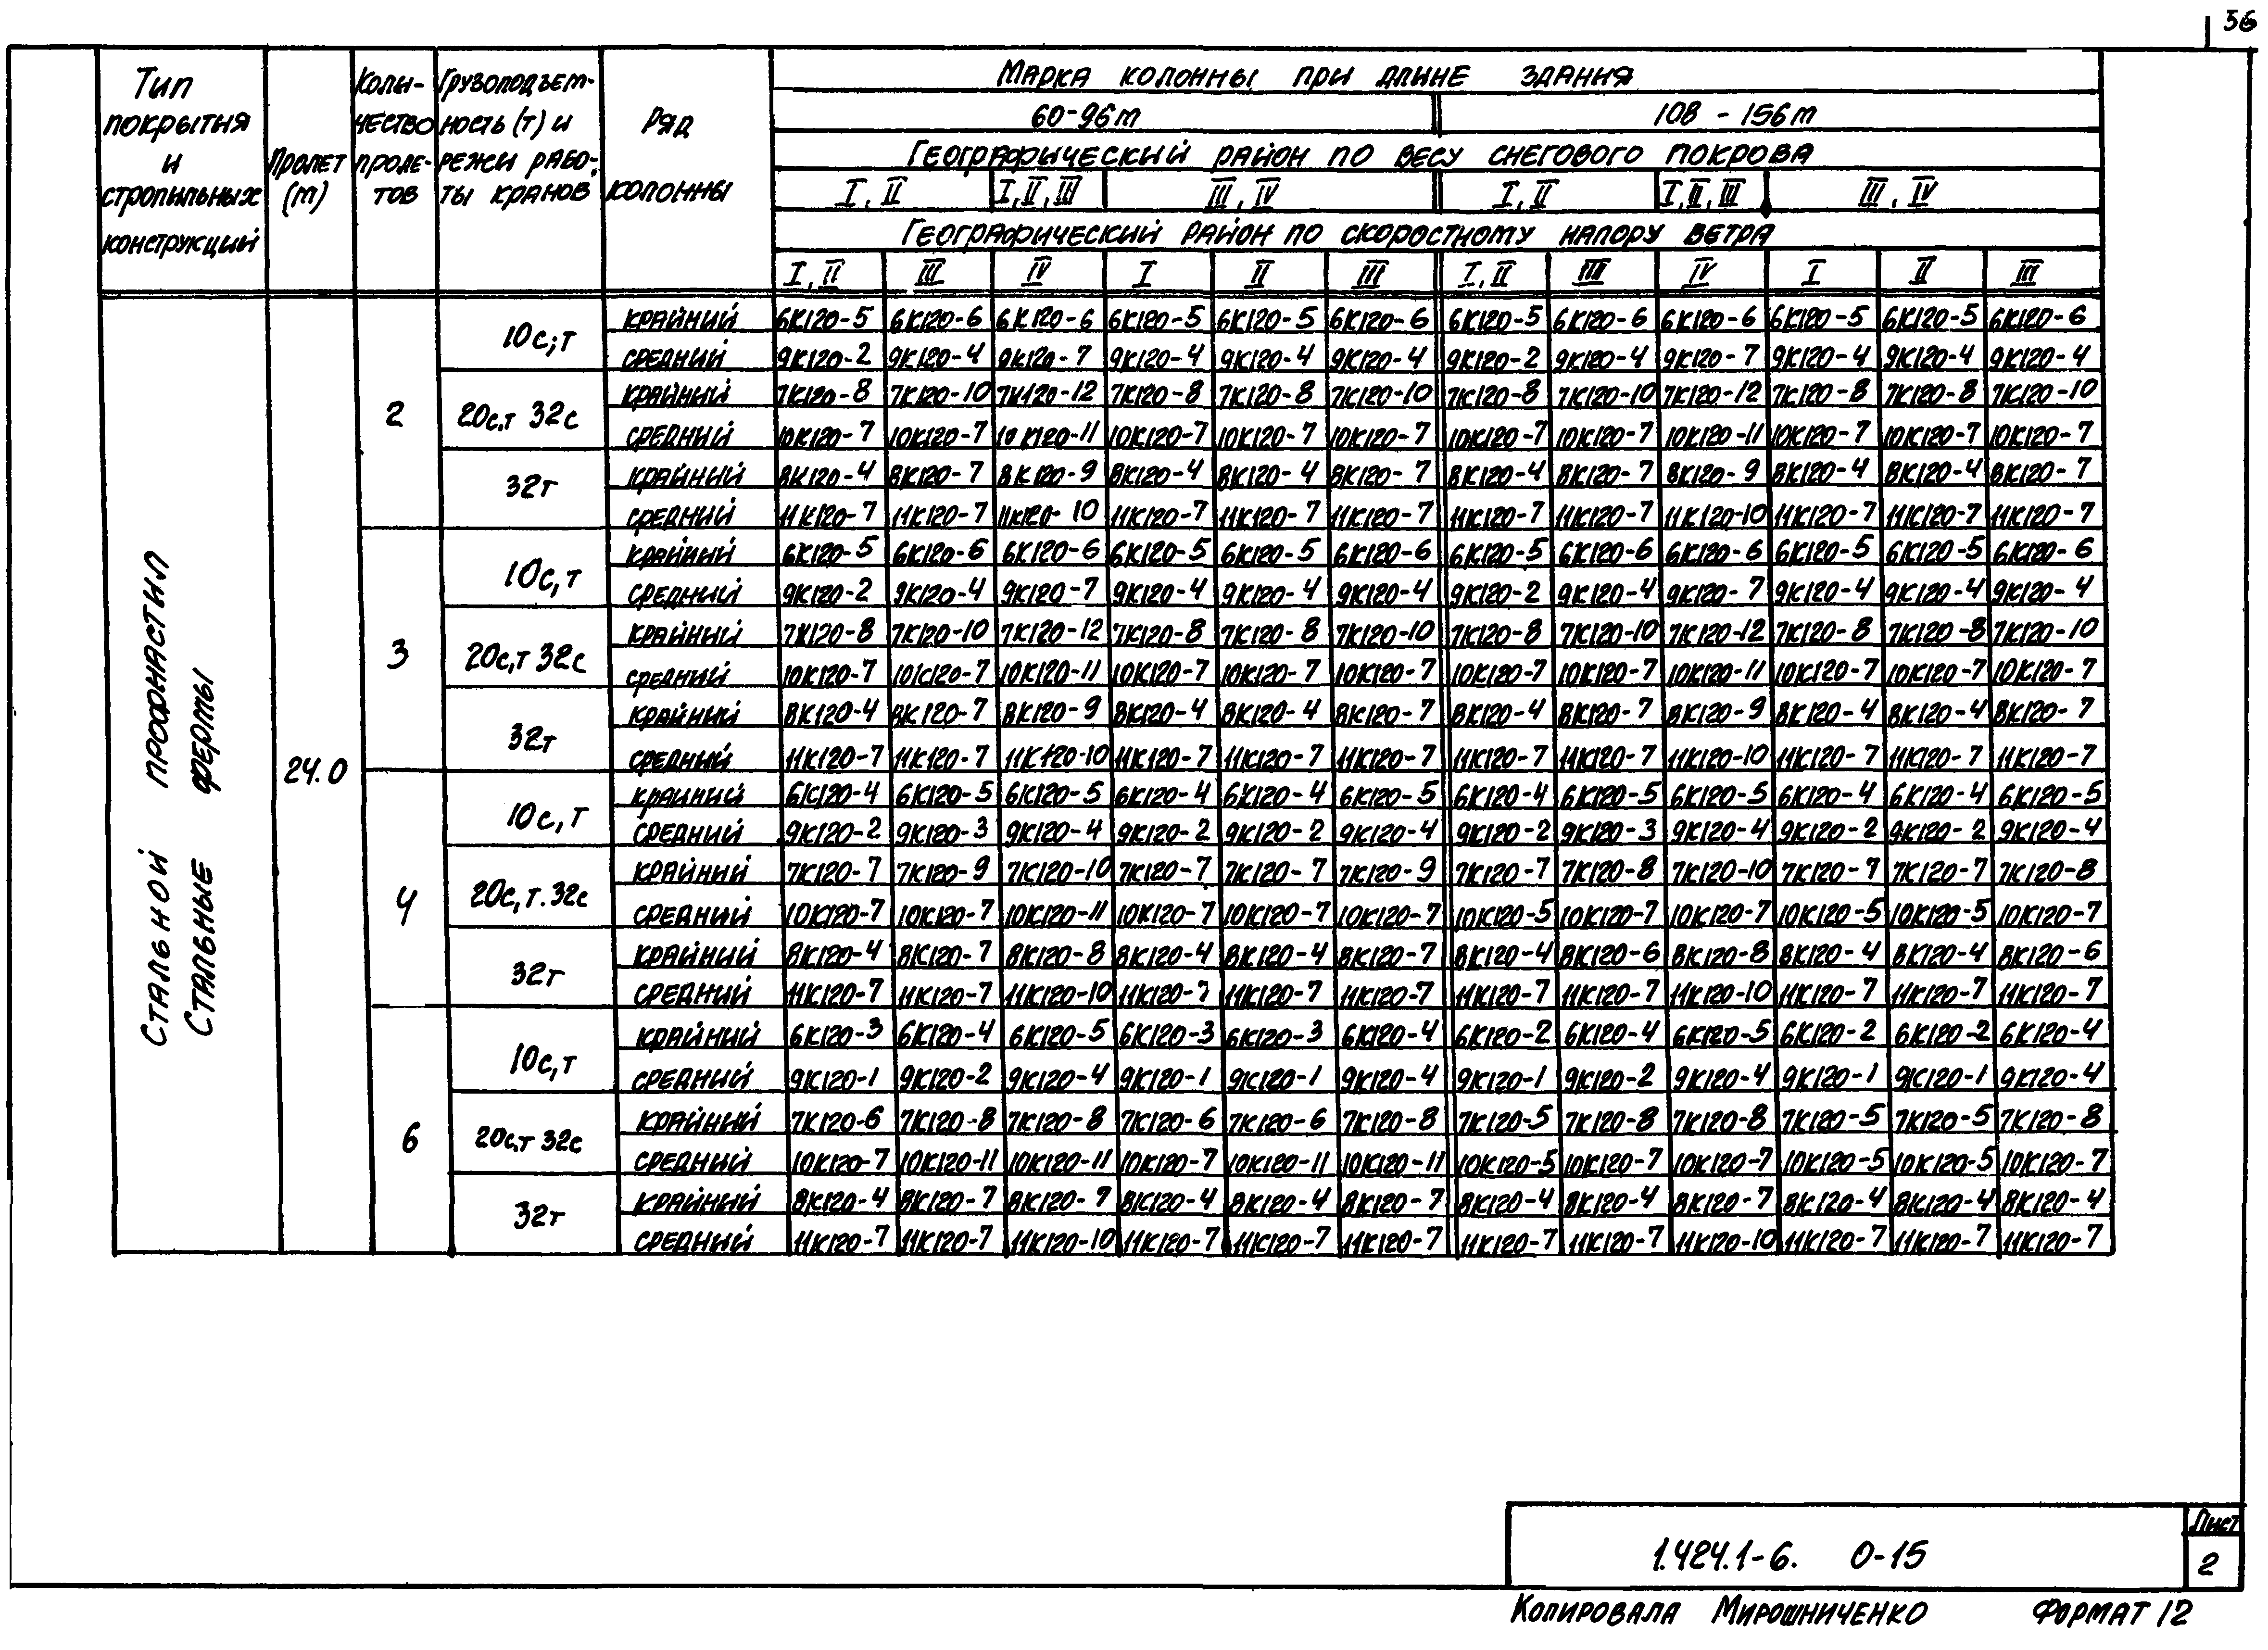 56
Тип покрытия и стропильных конструкций
Пролет (m)
Коли-чество проле-тов
Грузоподъем-ность (т) и режи рабо-ты кранов
Ряд колонны
Марка колонны при длине здания
60-96m 108-156m
Географический район по весу снегового покрова
I, II I, II, III III, IV I, II I, II, III III, IV
Географический район по скоростному напору ветра
I, II III IV I II III I, II III IV I II III
Стальной профнастил
Стальные фермы
24.0
2
10с,т
крайний 6К120-5 6К120-6 6К120-6 6К120-5 6К120-5 6К120-6 6К120-5 6К120-6 6К120-6 6К120-5 6К120-5 6К120-6
средний 9К120-2 9К120-4 9К120-7 9К120-4 9К120-4 9К120-4 9К120-2 9К120-4 9К120-7 9К120-4 9К120-4 9К120-4
20с,т 32с
крайний 7К120-8 7К120-10 7К120-12 7К120-8 7К120-8 7К120-10 7К120-8 7К120-10 7К120-12 7К120-8 7К120-8 7К120-10
средний 10К120-7 10К120-7 10К120-11 10К120-7 10К120-7 10К120-7 10К120-7 10К120-7 10К120-11 10К120-7 10К120-7 10К120-7
32т
крайний 8К120-4 8К120-7 8К120-9 8К120-4 8К120-4 8К120-7 8К120-4 8К120-7 8К120-9 8К120-4 8К120-4 8К120-7
средний 11К120-7 11К120-7 11К120-10 11К120-7 11К120-7 11К120-7 11К120-7 11К120-7 11К120-10 11К120-7 11К120-7 11К120-7
3
10с,т
крайний 6К120-5 6К120-6 6К120-6 6К120-5 6К120-5 6К120-6 6К120-5 6К120-6 6К120-6 6К120-5 6К120-5 6К120-6
средний 9К120-2 9К120-4 9К120-7 9К120-4 9К120-4 9К120-4 9К120-2 9К120-4 9К120-7 9К120-4 9К120-4 9К120-4
20с,т 32с
крайний 7К120-8 7К120-10 7К120-12 7К120-8 7К120-8 7К120-10 7К120-8 7К120-10 7К120-12 7К120-8 7К120-8 7К120-10
средний 10К120-7 10К120-7 10К120-11 10К120-7 10К120-7 10К120-7 10К120-7 10К120-7 10К120-11 10К120-7 10К120-7 10К120-7
32т
крайний 8К120-4 8К120-7 8К120-9 8К120-4 8К120-4 8К120-7 8К120-4 8К120-7 8К120-9 8К120-4 8К120-4 8К120-7
средний 11К120-7 11К120-7 11К120-10 11К120-7 11К120-7 11К120-7 11К120-7 11К120-7 11К120-10 11К120-7 11К120-7 11К120-7
4
10с,т
крайний 6К120-4 6К120-5 6К120-5 6К120-4 6К120-4 6К120-5 6К120-4 6К120-5 6К120-5 6К120-4 6К120-4 6К120-5
средний 9К120-2 9К120-3 9К120-4 9К120-2 9К120-2 9К120-4 9К120-2 9К120-3 9К120-4 9К120-2 9К120-2 9К120-4
20с,т.32с
крайний 7К120-7 7К120-9 7К120-10 7К120-7 7К120-7 7К120-9 7К120-7 7К120-8 7К120-10 7К120-7 7К120-7 7К120-8
средний 10К120-7 10К120-7 10К120-11 10К120-7 10К120-7 10К120-7 10К120-5 10К120-7 10К120-7 10К120-5 10К120-5 10К120-7
32т
крайний 8К120-4 8К120-7 8К120-8 8К120-4 8К120-4 8К120-7 8К120-4 8К120-6 8К120-8 8К120-4 8К120-4 8К120-6
средний 11К120-7 11К120-7 11К120-10 11К120-7 11К120-7 11К120-7 11К120-7 11К120-7 11К120-10 11К120-7 11К120-7 11К120-7
6
10с,т
крайний 6К120-3 6К120-4 6К120-5 6К120-3 6К120-3 6К120-4 6К120-2 6К120-4 6К120-5 6К120-2 6К120-2 6К120-4
средний 9К120-1 9К120-2 9К120-4 9К120-1 9К120-1 9К120-4 9К120-1 9К120-2 9К120-4 9К120-1 9К120-1 9К120-4
20с,т 32с
крайний 7К120-6 7К120-8 7К120-8 7К120-6 7К120-6 7К120-8 7К120-5 7К120-8 7К120-8 7К120-5 7К120-5 7К120-8
средний 10К120-7 10К120-11 10К120-11 10К120-7 10К120-11 10К120-11 10К120-5 10К120-7 10К120-7 10К120-5 10К120-5 10К120-7
32т
крайний 8К120-4 8К120-7 8К120-7 8К120-4 8К120-4 8К120-7 8К120-4 8К120-4 8К120-7 8К120-4 8К120-4 8К120-4
средний 11К120-7 11К120-7 11К120-10 11К120-7 11К120-7 11К120-7 11К120-7 11К120-7 11К120-10 11К120-7 11К120-7 11К120-7
1.424.1-6. 0-15
Лист
2
Копировала Мирошниченко Формат 12